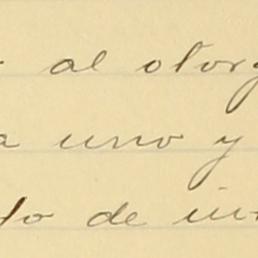 al otorg
a uno y
do de in